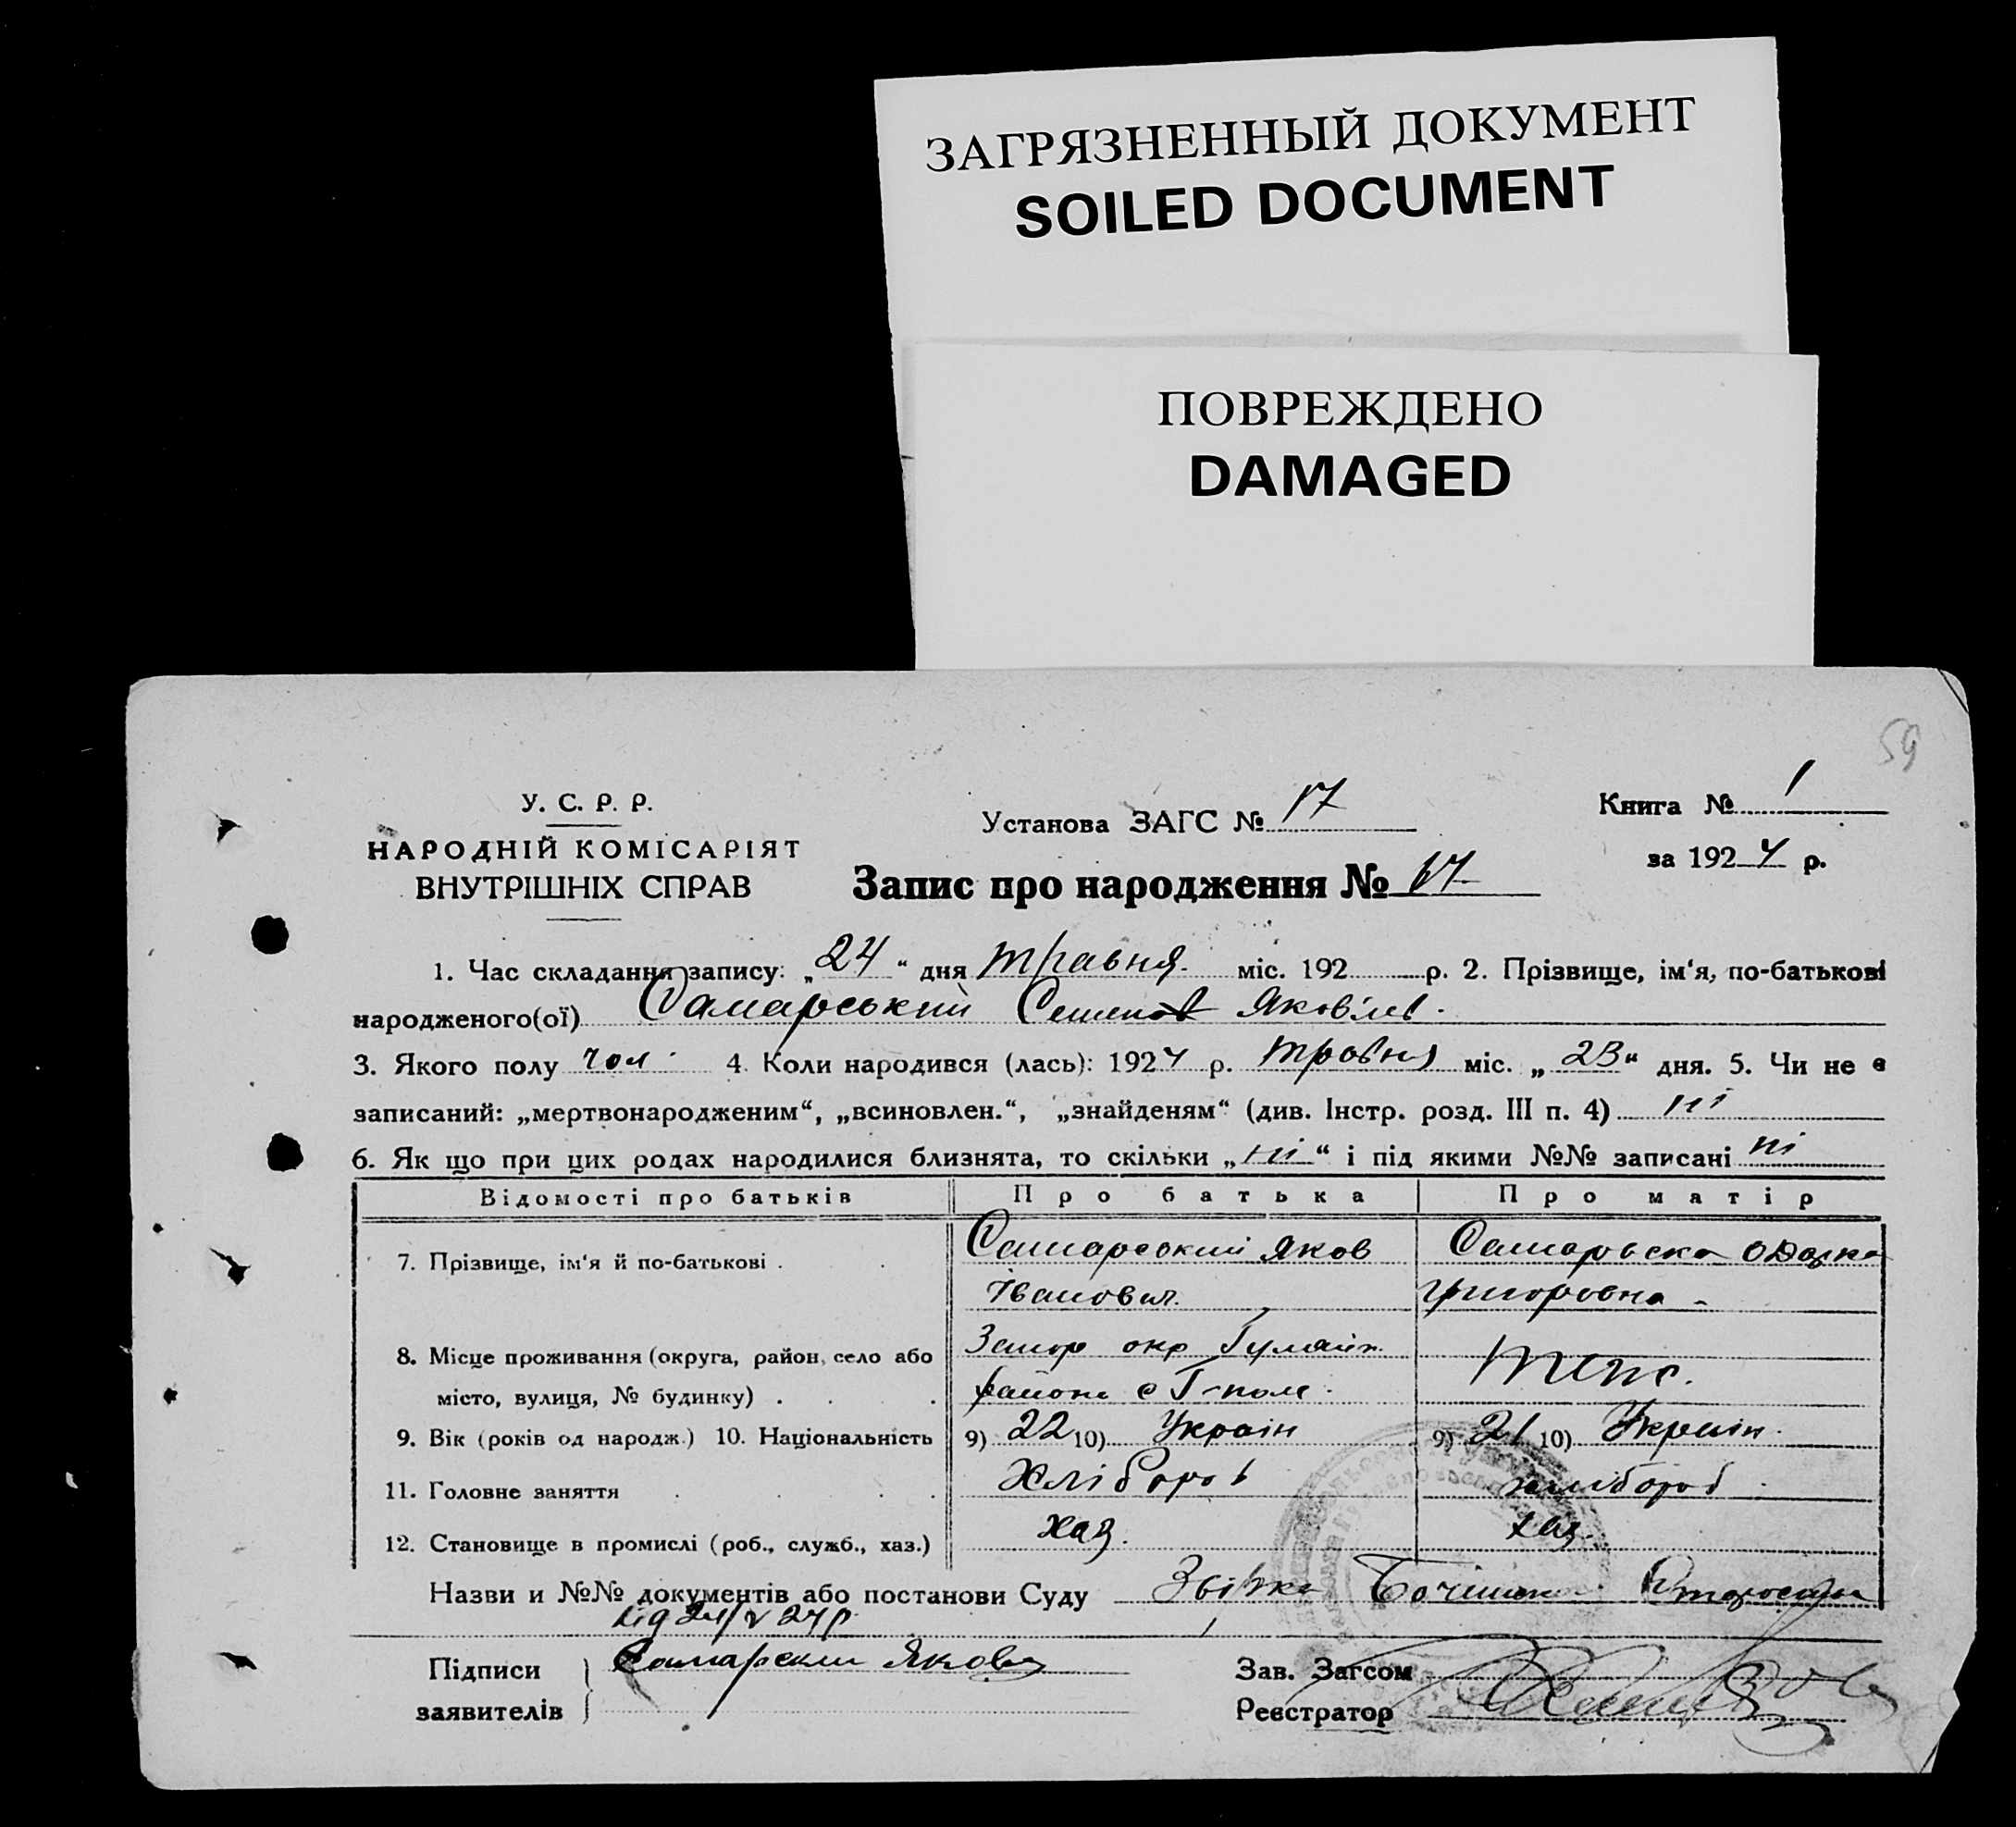 ЗАГРЯЗНЕННЫЙ ДОКУМЕНТ
SOILED DOCUMENT
ПОВРЕЖДЕНО
DAMAGED
59
У. С. Р. Р.
НАРОДНІЙ КОМІСАРІЯТ
ВНУТРІШНІХ СПРАВ
Установа ЗАГС № 17
Книга № 1
за 1924 р.
Запис про народження № 17
1. Час складання запису: „24“ дня травня міс. 192 р. 2. Прізвище, ім‘я, по-батькові
народженого(ої) Самарський Семен Яковлев.
3. Якого полу чол. 4. Коли народився (лась): 1924 р. травня міс. „23“ дня. 5. Чи не є
записаний: „мертвонародженим“, „всиновлен.“, „знайденям“ (див. Інстр. розд. III п. 4) ні
6. Як що при цих родах народилися близнята, то скільки „ні“ і під якими №№ записані ні
Відомості про батьків Про батька Про матір
7. Прізвище, ім‘я й по-батькові . Самарський Яков Самарська
Іванович. Григоровна
8. Місце проживання (округа, район, село або Запор окр Гуляйп.
місто, вулиця, № будинку) . района с Г-поле. теж.
9. Вік (років од народж.) 10. Національність 9) 22 10) Україн 9) 21 10) Україн.
11. Головне заняття Хлібороб хлібороб
12. Становище в промислі (роб., служб., хаз.) хаз. хаз.
Назви и №№ документів або постанови Суду
від 24/V 24р.
Підписи заявителів Самарский Яков
Зав. Загсом
Реєстратор